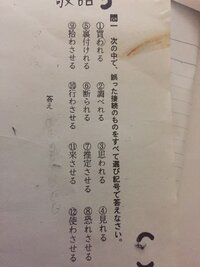 問一 次の中で、誤った接続のものをすべて選び記号で答えなさい。
①買われる ②調べれる ③思われる ④見れる
⑤裏付けれる ⑥断られる ⑦推定させる ⑧恐れさせる
⑨拾わさせる ⑩行わさせる ⑪来させる ⑫使わさせる
答え